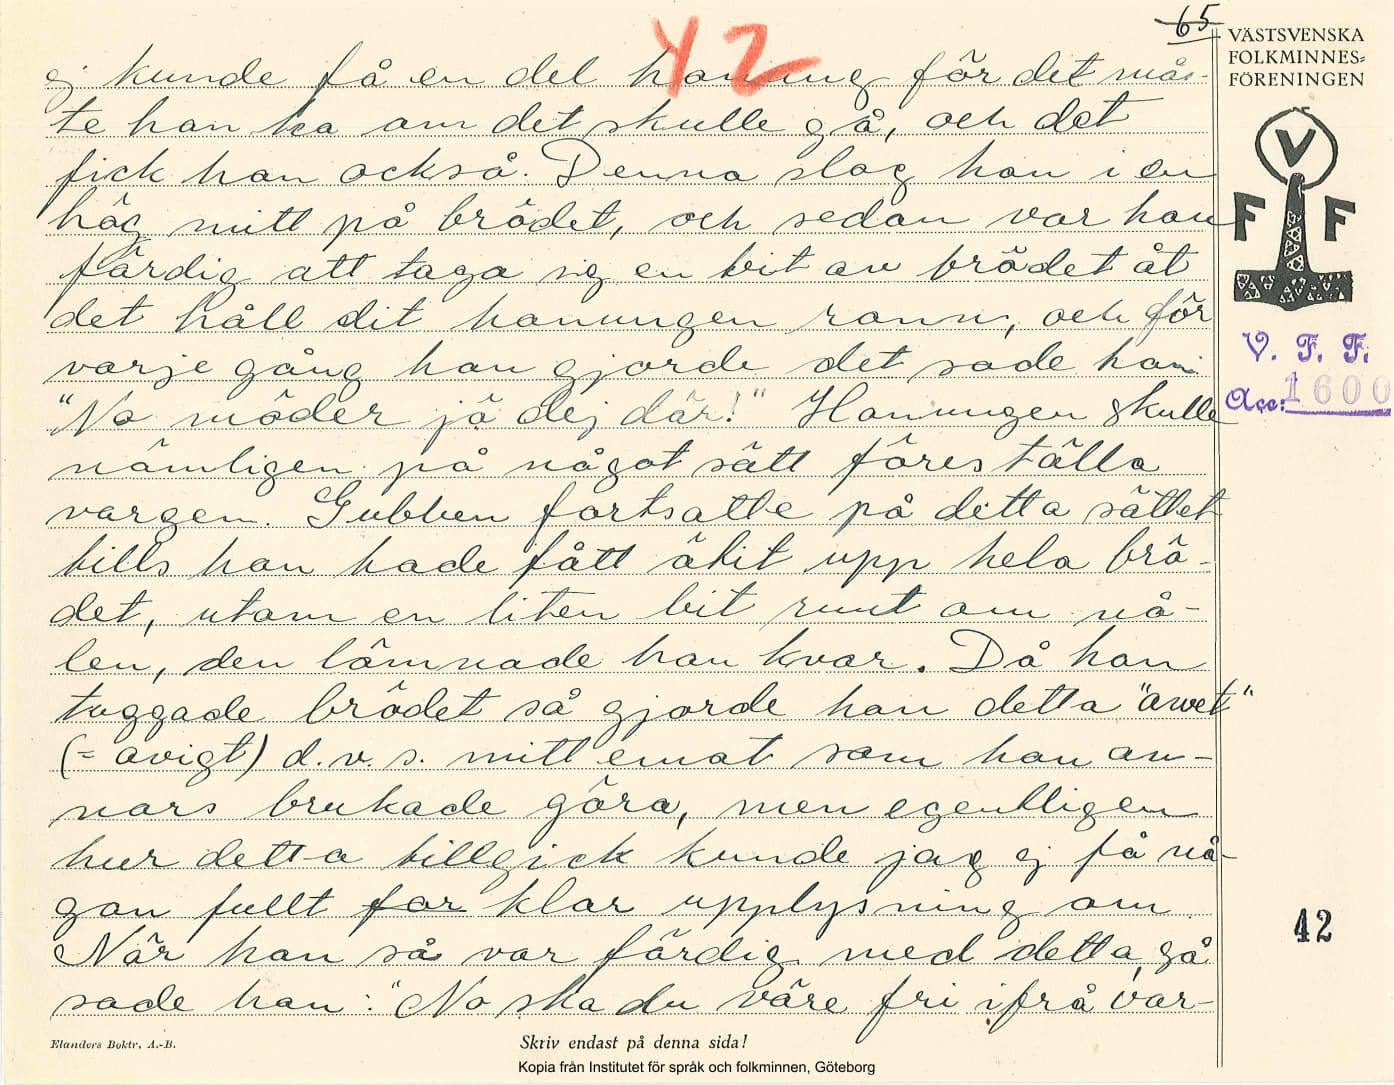 65
42
VÄSTSVENSKA
FOLKMINNES=
FÖRENINGEN
V
F F
V. F. F.
Acc: 1600
ej kunde få en del honung för det mås-
te han ha om det skulle gå, och det
fick han också. Denna slog han i en
hög mitt på brödet, och sedan var han
färdig att taga sig en bit av brödet åt
det håll dit honungen rann, och för
varje gång han gjorde det sade han
"No möder jä dej där!" Honungen skulle
nämligen på något sätt föreställa
vargen. Gubben fortsatte på detta sättet
tills han hade fått ätit upp hela brö-
det, utom en liten bit runt om nå-
len, den lämnade han kvar. Då han
tuggade brödet så gjorde han detta "awet"
(= avigt) d.v.s. mitt emot som han an-
nars brukade göra, men egentligen
hur detta tillgick kunde jag ej få nå-
gon fullt for klar upplysning om.
När han så var färdig med detta, så
sade han: "No ska du väre fri ifrå var-
42
Elanders Boktr. A.-B.
Skriv endast på denna sida!
Kopia från Institutet för språk och folkminnen, Göteborg